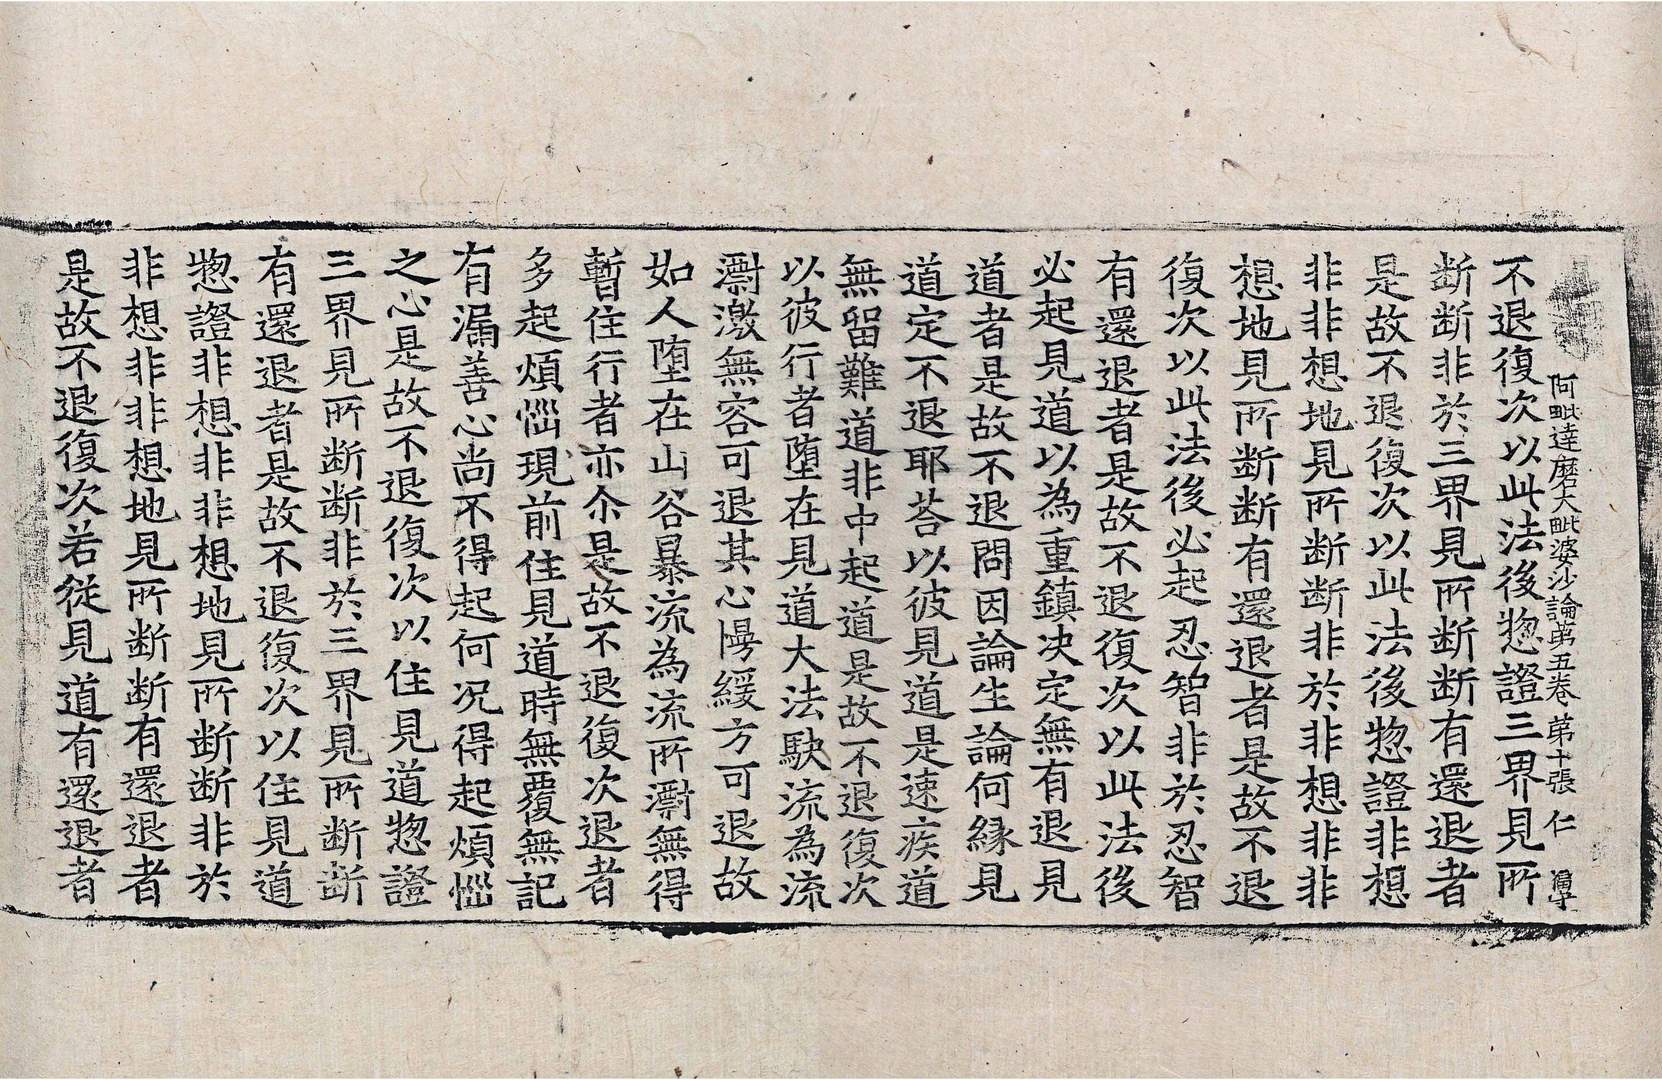 阿毗達磨大毗婆沙論第五卷 第十張 仁
不退復次以此法後惣證三界見所
断断非於三界見所断断有還退者
是故不退復次以此法後惣證非想
非非想地見所断断非於非想非非
想地見所断断有還退者是故不退
復次以此法後必起忍智非於忍智
有還退者是故不退復次以此法後
必起見道以為重鎮决定無有退見
道者是故不退問因論生論何縁見
道定不退耶荅以彼見道是速疾道
無留難道非中起道是故不退復次
以彼行者墮在見道大法駃流為流
㵝激無容可退其心慢緩方可退故
如人墮在山谷暴流為流所㵝無得
暫住行者亦尒是故不退復次退者
多起煩惱現前住見道時無覆無記
有漏善心尚不得起何况得起煩惱
之心是故不退復次以住見道惣證
三界見所断断非於三界見所断断
有還退者是故不退復次以住見道
惣證非想非非想地見所断断非於
非想非非想地見所断断有還退者
是故不退復次若從見道有還退者